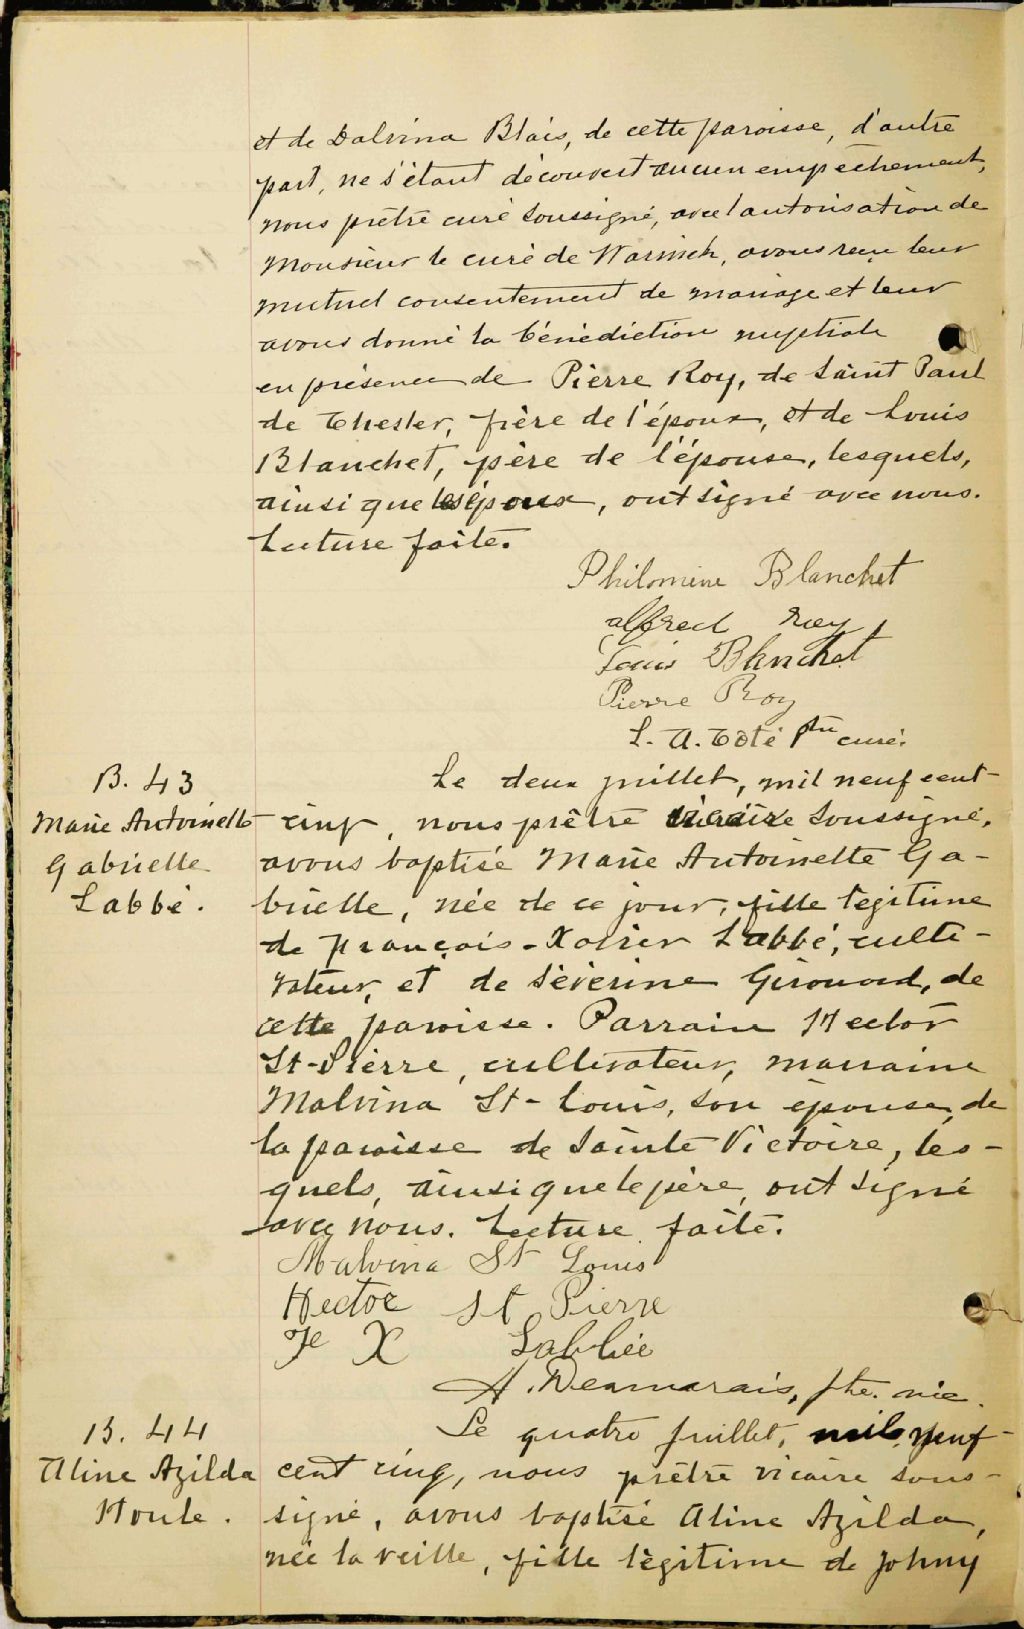 et de Dalvina Blais, de cette paroisse, d'autre
part, ne s'étant découvert aucun empêchement,
nous prêtre curé soussigné, avec l'autorisation de
Monsieur le curé de Warwick, avons reçu leur
mutuel consentement de mariage et leur
avons donné la bénédiction nuptiale
en présence de Pierre Roy, de Saint Paul
de Chester, frère de l'époux, et de Louis
Blanchet, père de l'épouse, lesquels,
ainsi que les époux, ont signé avec nous.
Lecture faite.
Philomine Blanchet
alfred Roy
Louis Blanchet
Pierre Roy
L. A. Coté ptre curé.
B. 43
Marie Antoinette
Gabrielle
Labbé.
Le deux juillet, mil neuf cent
cinq, nous prêtre vicaire soussigné,
avons baptisé Marie Antoinette Ga-
brielle, née de ce jour, fille légitime
de François-Xavier Labbé, culti-
vateur, et de Séverine Girouard, de
cette paroisse. Parrain Hector
St-Pierre, cultivateur, marraine
Malvina St-Louis, son épouse, de
la paroisse de Sainte Victoire, les-
quels, ainsi que le père, ont signé
avec nous. Lecture faite.
Malvina St Louis
Hector St Pierre
F X Labbée
A. Desmarais, ptre. vic.
B. 44
Aline Azilda
Houle.
Le quatre juillet, mil neuf
cent cinq, nous prêtre vicaire sous-
signé, avons baptisé Aline Azilda,
née la veille, fille légitime de Johny